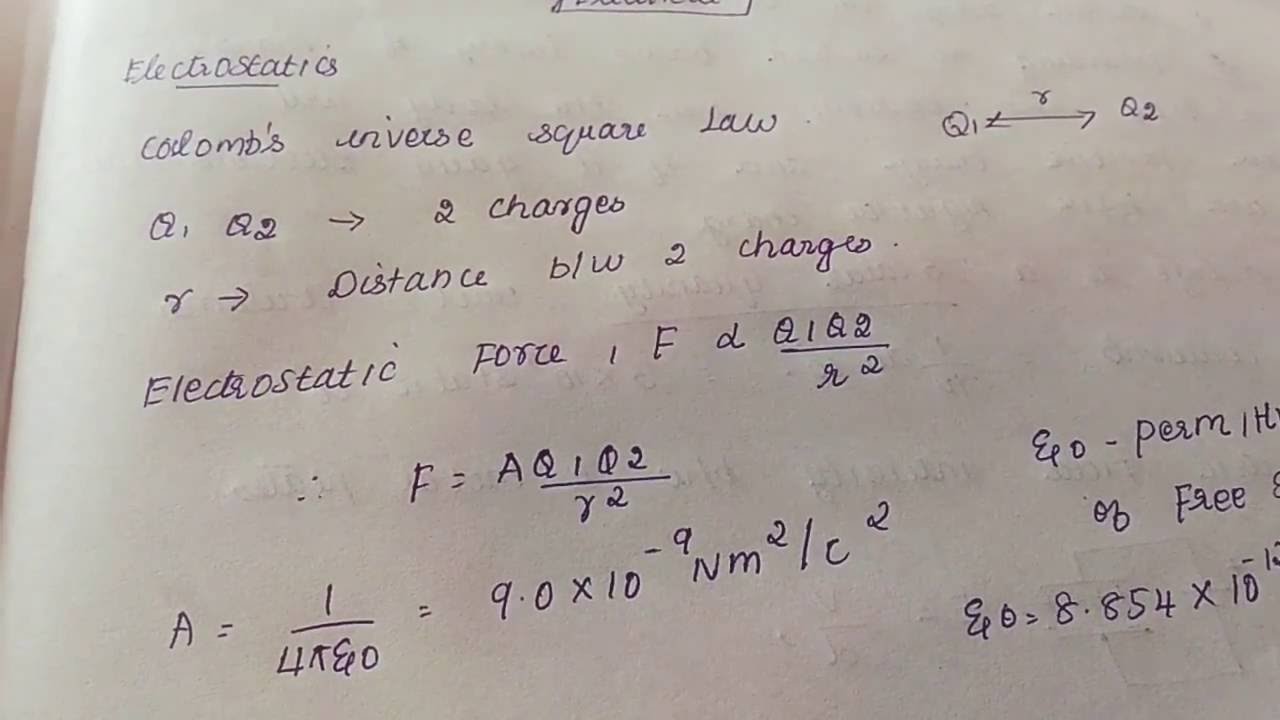 Electrostatics
Coulomb's inverse square Law . Q1 ⟷ r Q2
Q1 Q2 → 2 charges
r → Distance b/w 2 charges.
Electrostatic Force, F α Q1Q2/r²
∴ F = A Q1Q2/r²
ε0 - perm
of Free
A = 1/4πε0 = 9.0 × 10⁻⁹ Nm²/c²
ε0 = 8.854 × 10⁻¹²